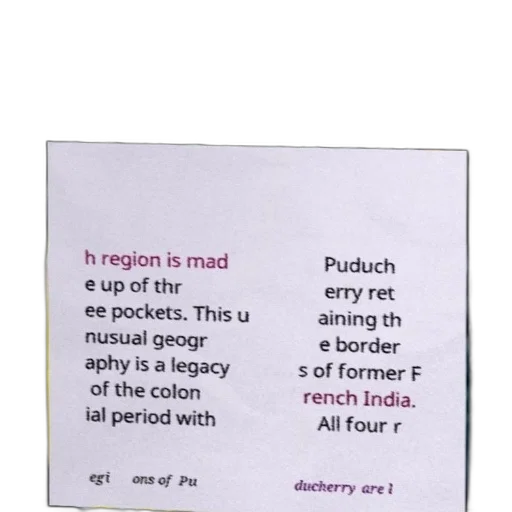 h region is mad
e up of thr
ee pockets. This u
nusual geogr
aphy is a legacy
of the colon
ial period with
Puduch
erry ret
aining th
e border
s of former F
rench India.
All four r
egi ons of Pu
ducherry are l